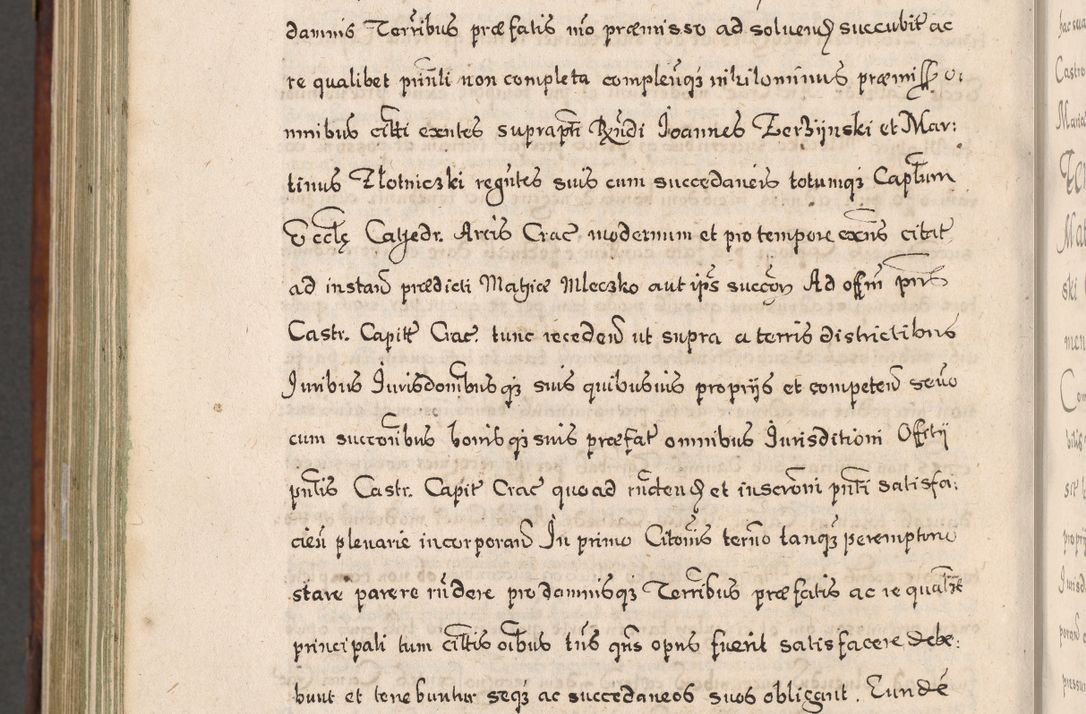 damnis Terribus præfatis mo præmisso ad soluend succubit ac
re qualibet pnnli non completa compleuqз nihilominus præmisso o:
mnibus citti exntes suprapti Rndi Joannes Zerzijnski et Mar:
tinus Złotniczki regntes suis cum succedaneis totumqз Captum
Eccłę Cathedr. Arcis Crac modernum et pro tempore exns citat
ad instan prædicti Mathiæ Mleczko aut ips succon Ad offm pns
Castr. Capit Crac. tunc recedend ut supra a terris districtibus
Juribus Jurisdombus qз suis quibusuis proprijs et competen seuo
cum succonibus bonis qз suis præfat omnibus Jurisditioni Offitij
pntis Castr. Capit Crac quoad rnctend et inscroni pnti satisfa:
cien plenarie incorporand In primo Citonis terno tanqз peremptorio
stare parere rndere pro damnisqз Terribus præfatis ac re qualbt
principali tum cittis oibus tns qrs opus fuerit satisfacere debe:
bunt et tenebuntur seqз ac succedaneos suos obligant. Eundē